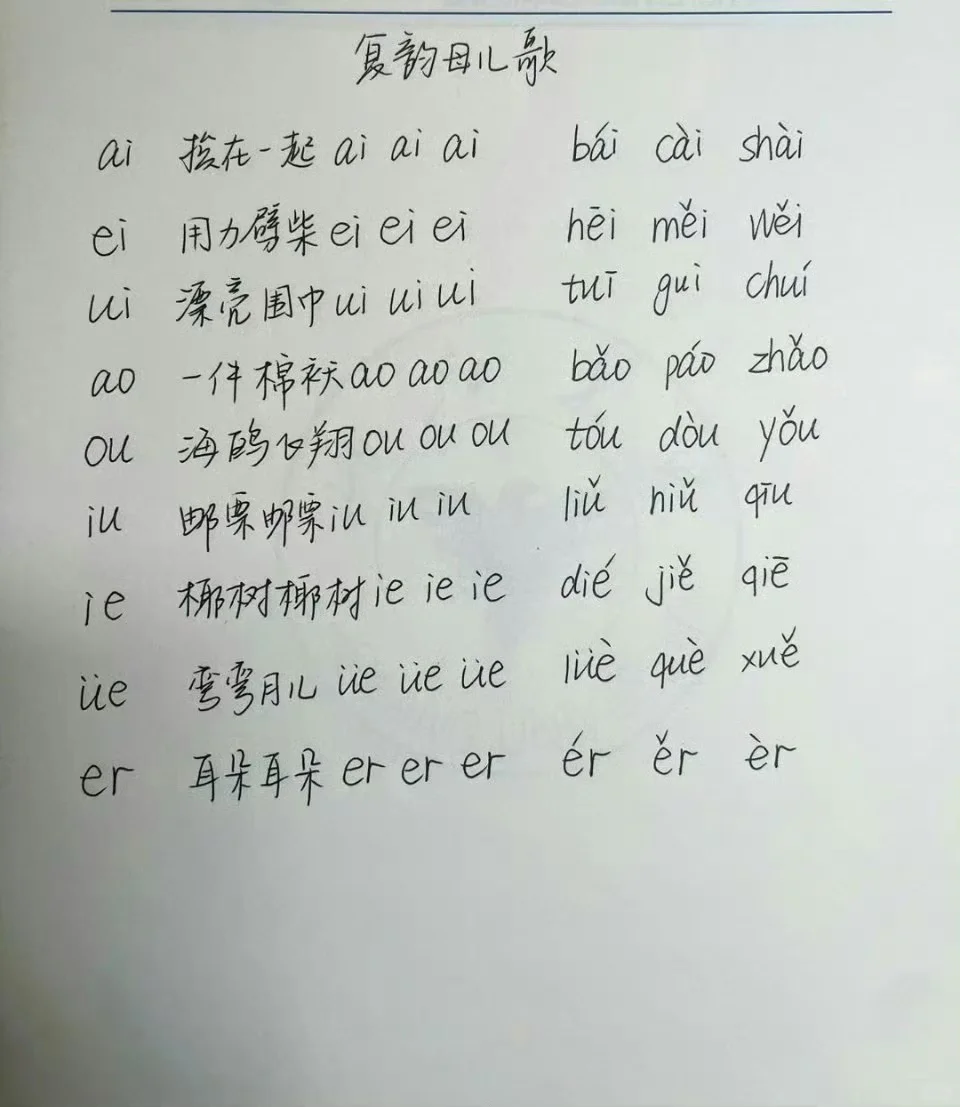 复韵母儿歌
ai 捡在一起 ai ai ai bái cài shài
ei 用力劈柴 ei ei ei hēi měi wěi
ui 漂亮围巾 ui ui ui tuī guì chuí
ao 一件棉袄 ao ao ao bǎo páo zhǎo
ou 海鸥飞翔 ou ou ou tóu dòu yǒu
iu 邮票邮票 iu iu iu liǔ niǔ qīu
ie 椰树椰树 ie ie ie dié jiě qiē
üe 弯弯月儿 üe üe üe lüè què xuě
er 耳朵耳朵 er er er ér ěr èr